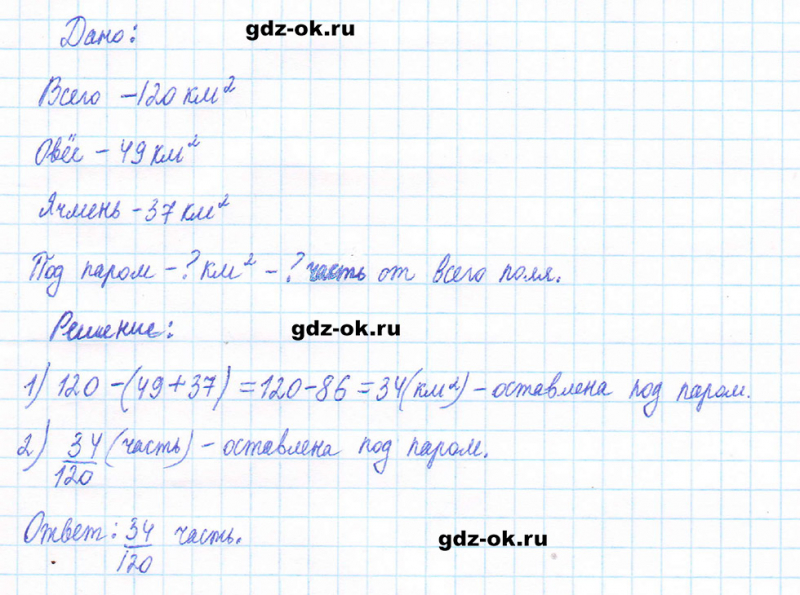 Дано: gdz-ok.ru
Всего – 120 км²
Овёс – 49 км²
Ячмень – 37 км²
Под паром – ? км² – ? часть от всего поля.
Решение: gdz-ok.ru
1) 120 – (49 + 37) = 120 – 86 = 34 (км²) – оставлена под паром.
2) 34/120 (часть) – оставлена под паром.
Ответ: 34/120 часть. gdz-ok.ru